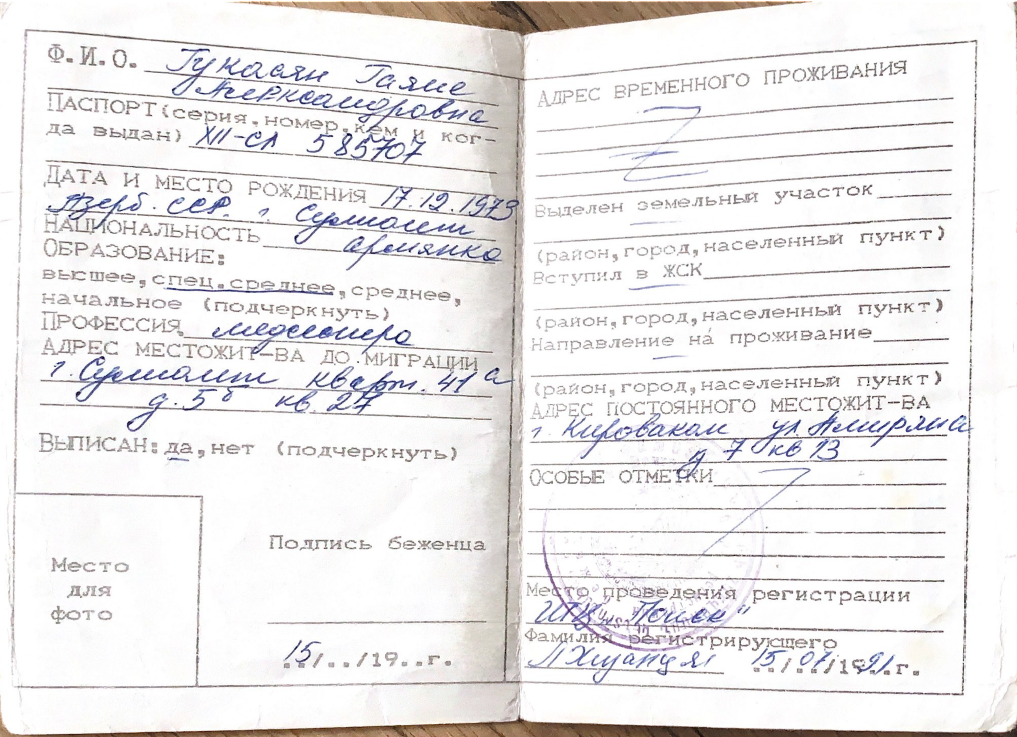 Ф.И.О. Гукасян Гаяне
Александровна
ПАСПОРТ (серия, номер, кем и ког-
да выдан) XII-СЛ 585707
ДАТА И МЕСТО РОЖДЕНИЯ 17.12.1973
Азерб. ССР. г. Сумгаит
НАЦИОНАЛЬНОСТЬ армянка
ОБРАЗОВАНИЕ:
высшее, спец. среднее, среднее,
начальное (подчеркнуть)
ПРОФЕССИЯ медсестра
АДРЕС МЕСТОЖИТ-ВА ДО МИГРАЦИИ
г. Сумгаит кварт. 41 а
д. 5б кв. 27
ВЫПИСАН: да, нет (подчеркнуть)
Место
для
фото
Подпись беженца
15/../19..г.
АДРЕС ВРЕМЕННОГО ПРОЖИВАНИЯ
Выделен земельный участок
(район, город, населенный пункт)
Вступил в ЖСК
(район, город, населенный пункт)
Направление на проживание
(район, город, населенный пункт)
АДРЕС ПОСТОЯННОГО МЕСТОЖИТ-ВА
г. Кировакан ул. Амиряна
д 7 кв 13
ОСОБЫЕ ОТМЕТКИ
Место проведения регистрации
"Поиск"
Фамилия регистрирующего
15/07/1991г.